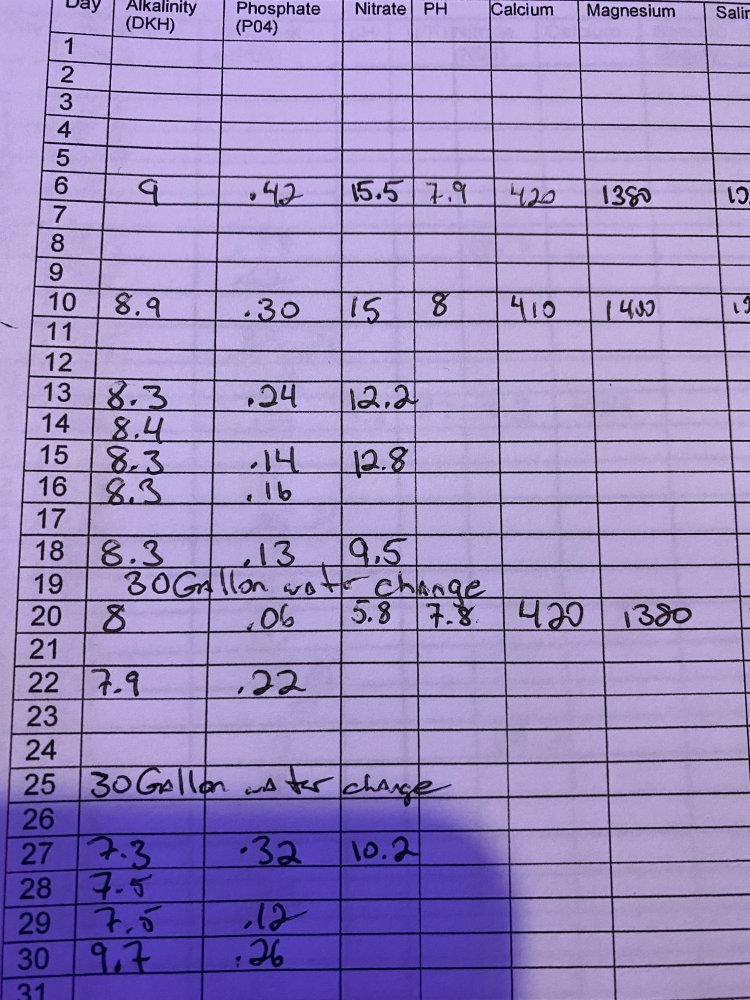 Day Alkalinity (DKH) Phosphate (P04) Nitrate PH Calcium Magnesium
1
2
3
4
5
6 9 .42 15.5 7.9 420 1380
7
8
9
10 8.9 .30 15 8 410 1400
11
12
13 8.3 .24 12.2
14 8.4
15 8.3 .14 12.8
16 8.3 .16
17
18 8.3 .13 9.5
19 30 Gallon water change
20 8 .06 5.8 7.8 420 1380
21
22 7.9 .22
23
24
25 30 Gallon water change
26
27 7.3 .32 10.2
28 7.5
29 7.5 .12
30 9.7 .26
31